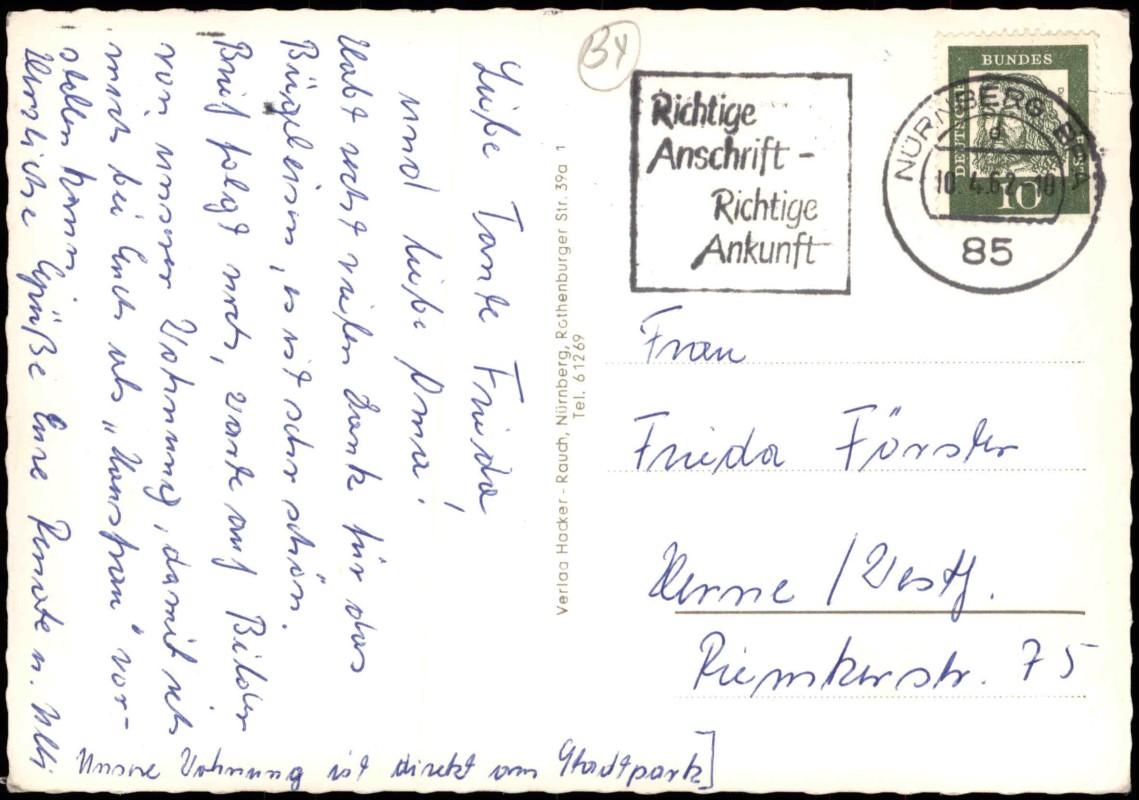 Liebe Tante Frieda,
und liebe Oma!
Habt recht vielen Dank für das
Bügeleisen, es ist sehr schön.
Brief folgt noch, warte auf Bilder
von unserer Wohnung, damit Ihr
mich bei Euch als „Hausfrau" vor-
stellen könnt.
Herzliche Grüße Eure Renate u. Uli
Unsere Wohnung ist direkt am Stadtpark]
Verlag Hacker - Rauch, Nürnberg, Rothenburger Str. 39a 1
Tel. 61269
BY
Richtige
Anschrift -
Richtige
Ankunft
BUNDES
DEUTSCHE
POST
10
NÜRNBERG BPA
d
10.4.62-10
85
Frau
Frieda Förster
Herne / Westf.
Riemkerstr. 75